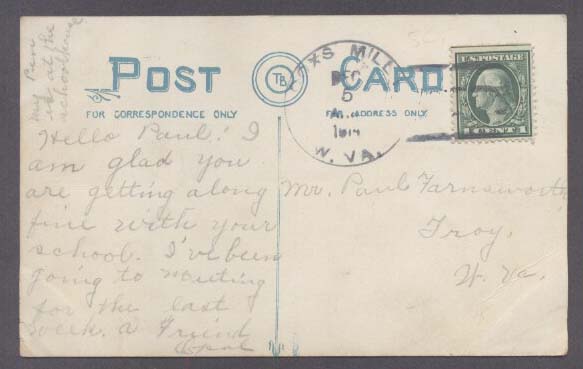 My Pen
is at the
schoolhouse
POST CARD
TB
FOR CORRESPONDENCE ONLY
FOR ADDRESS ONLY
MILLS
DEC
5
W. VA.
U.S. POSTAGE
1 CENT 1
Hello Paul! I
am glad you
are getting along
fine with your
school. I've been
going to meeting
for the last
week. a Friend
Opal
Mr. Paul Farnsworth
Troy,
W. Va.